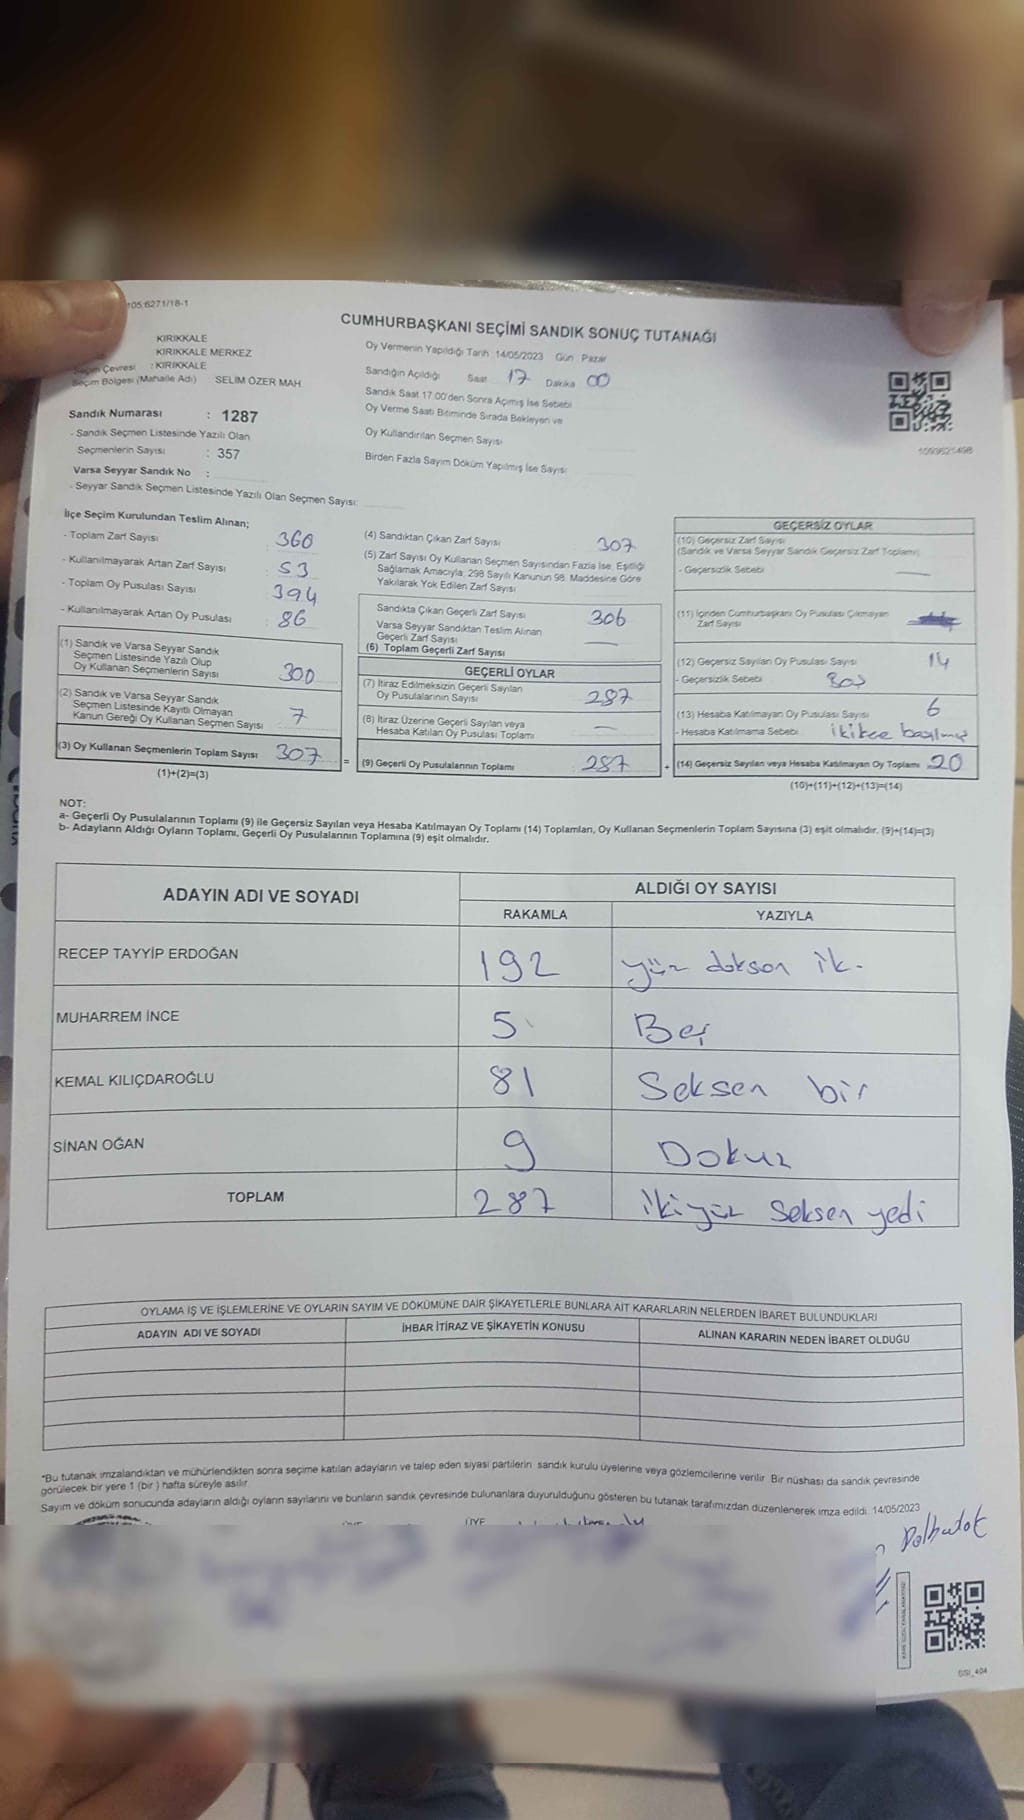 105 6271/18-1
CUMHURBAŞKANI SEÇİMİ SANDIK SONUÇ TUTANAĞI
KIRIKKALE
KIRIKKALE MERKEZ
Seçim Çevresi : KIRIKKALE
Seçim Bölgesi (Mahalle Adı) SELIM ÖZER MAH
Sandık Numarası : 1287
- Sandık Seçmen Listesinde Yazılı Olan
Seçmenlerin Sayısı : 357
Varsa Seyyar Sandık No :
- Seyyar Sandık Seçmen Listesinde Yazılı Olan Seçmen Sayısı:
Oy Vermenin Yapıldığı Tarih :14/05/2023 Gün Pazar
Sandığın Açıldığı Saat 17 Dakika 00
Sandık Saat 17:00'den Sonra Açımış İse Sebebi
Oy Verme Saati Bitiminde Sırada Bekleyen ve
Oy Kullandırılan Seçmen Sayısı
Birden Fazla Sayım Döküm Yapılmış İse Sayısı
İlçe Seçim Kurulundan Teslim Alınan;
- Toplam Zarf Sayısı : 360
- Kullanılmayarak Artan Zarf Sayısı : 53
- Toplam Oy Pusulası Sayısı : 394
- Kullanılmayarak Artan Oy Pusulası : 86
(1) Sandık ve Varsa Seyyar Sandık
Seçmen Listesinde Yazılı Olup
Oy Kullanan Seçmenlerin Sayısı 300
(2) Sandık ve Varsa Seyyar Sandık
Seçmen Listesinde Kayıtlı Olmayan
Kanun Gereği Oy Kullanan Seçmen Sayısı 7
(3) Oy Kullanan Seçmenlerin Toplam Sayısı 307 =
(1)+(2)=(3)
(4) Sandıktan Çıkan Zarf Sayısı 307
(5) Zarf Sayısı Oy Kullanan Seçmen Sayısından Fazla İse, Eşitliği
Sağlamak Amacıyla, 298 Sayılı Kanunun 98. Maddesine Göre
Yakılarak Yok Edilen Zarf Sayısı
Sandıkta Çıkan Geçerli Zarf Sayısı 306
Varsa Seyyar Sandıktan Teslim Alınan
Geçerli Zarf Sayısı —
(6) Toplam Geçerli Zarf Sayısı
GEÇERLİ OYLAR
(7) İtiraz Edilmeksizin Geçerli Sayılan
Oy Pusulalarının Sayısı 287
(8) İtiraz Üzerine Geçerli Sayılan veya
Hesaba Katılan Oy Pusulası Toplamı —
(9) Geçerli Oy Pusulalarının Toplamı 287 +
GEÇERSİZ OYLAR
(10) Geçersiz Zarf Sayısı
(Sandık ve Varsa Seyyar Sandık Geçersiz Zarf Toplamı)
- Geçersizlik Sebebi —
(11) İçinden Cumhurbaşkanı Oy Pusulası Çıkmayan
Zarf Sayısı
(12) Geçersiz Sayılan Oy Pusulası Sayısı 14
- Geçersizlik Sebebi Boş
(13) Hesaba Katılmayan Oy Pusulası Sayısı 6
- Hesaba Katılmama Sebebi
(14) Geçersiz Sayılan veya Hesaba Katılmayan Oy Toplamı 20
(10)+(11)+(12)+(13)=(14)
NOT:
a- Geçerli Oy Pusulalarının Toplamı (9) ile Geçersiz Sayılan veya Hesaba Katılmayan Oy Toplamı (14) Toplamları, Oy Kullanan Seçmenlerin Toplam Sayısına (3) eşit olmalıdır. (9)+(14)=(3)
b- Adayların Aldığı Oyların Toplamı, Geçerli Oy Pusulalarının Toplamına (9) eşit olmalıdır.
ADAYIN ADI VE SOYADI ALDIĞI OY SAYISI
RAKAMLA YAZIYLA
RECEP TAYYİP ERDOĞAN 192 yüz doksan ik.
MUHARREM İNCE 5 Beş
KEMAL KILIÇDAROĞLU 81 Seksen bir
SİNAN OĞAN 9 Dokuz
TOPLAM 287 ikiyüz Seksen yedi
OYLAMA İŞ VE İŞLEMLERİNE VE OYLARIN SAYIM VE DÖKÜMÜNE DAİR ŞİKAYETLERLE BUNLARA AİT KARARLARIN NELERDEN İBARET BULUNDUKLARI
ADAYIN ADI VE SOYADI İHBAR İTİRAZ VE ŞİKAYETİN KONUSU ALINAN KARARIN NEDEN İBARET OLDUĞU
*Bu tutanak imzalandıktan ve mühürlendikten sonra seçime katılan adayların ve talep eden siyasi partilerin sandık kurulu üyelerine veya gözlemcilerine verilir Bir nüshası da sandık çevresinde
görülecek bir yere 1 (bir ) hafta süreyle asılır
Sayım ve döküm sonucunda adayların aldığı oyların sayılarını ve bunların sandık çevresinde bulunanlara duyurulduğunu gösteren bu tutanak tarafımızdan düzenlenerek imza edildi. 14/05/2023
ÜYE